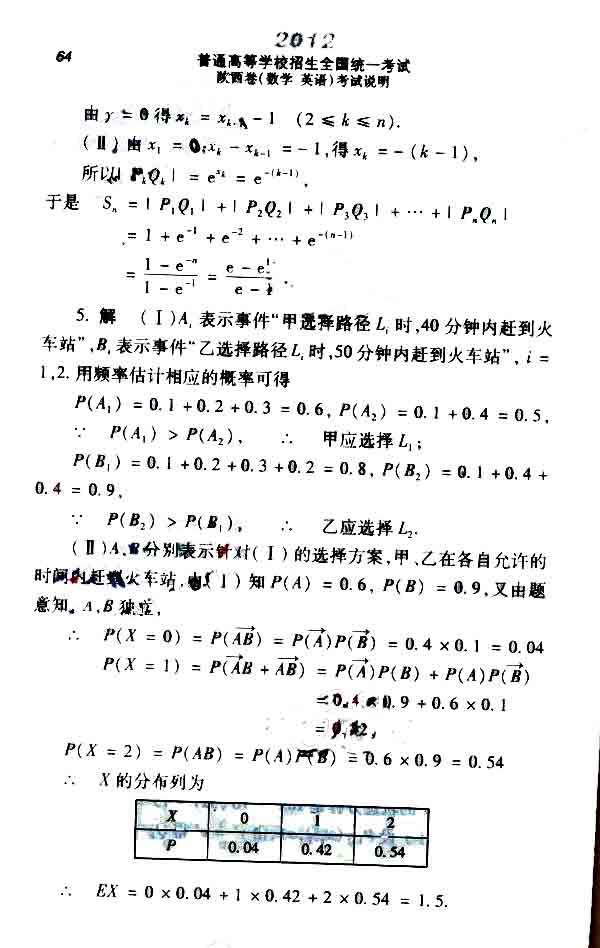 2012
64
普通高等学校招生全国统一考试
陕西卷(数学 英语)考试说明
由 y = 0 得 xₖ = xₖ₋₁ - 1 (2 ≤ k ≤ n).
(Ⅱ) 由 x₁ = 0, xₖ - xₖ₋₁ = -1, 得 xₖ = -(k - 1),
所以 |PₖQₖ| = e^(xₖ) = e^(-(k-1)),
于是 Sₙ = |P₁Q₁| + |P₂Q₂| + |P₃Q₃| + ⋯ + |PₙQₙ|
= 1 + e⁻¹ + e⁻² + ⋯ + e^(-(n-1))
= (1 - e⁻ⁿ)/(1 - e⁻¹) =
5. 解 (Ⅰ) Aᵢ 表示事件“甲选择路径 Lᵢ 时,40 分钟内赶到火
车站”, Bᵢ 表示事件“乙选择路径 Lᵢ 时,50 分钟内赶到火车站”, i =
1,2. 用频率估计相应的概率可得
P(A₁) = 0.1 + 0.2 + 0.3 = 0.6, P(A₂) = 0.1 + 0.4 = 0.5,
∵ P(A₁) > P(A₂), ∴ 甲应选择 L₁;
P(B₁) = 0.1 + 0.2 + 0.3 + 0.2 = 0.8, P(B₂) = 0.1 + 0.4 +
0.4 = 0.9,
∵ P(B₂) > P(B₁), ∴ 乙应选择 L₂.
(Ⅱ) A, B 分别表示针对(Ⅰ)的选择方案,甲、乙在各自允许的
时间内赶到火车站,由(Ⅰ)知 P(A) = 0.6, P(B) = 0.9, 又由题
意知, A, B 独立,
∴ P(X = 0) = P(A̅B̅) = P(A̅)P(B̅) = 0.4 × 0.1 = 0.04
P(X = 1) = P(A̅B + AB̅) = P(A̅)P(B) + P(A)P(B̅)
= 0.4 × 0.9 + 0.6 × 0.1
= 0.42,
P(X = 2) = P(AB) = P(A)P(B) = 0.6 × 0.9 = 0.54
∴ X 的分布列为
X 0 1 2
P 0.04 0.42 0.54
∴ EX = 0 × 0.04 + 1 × 0.42 + 2 × 0.54 = 1.5.